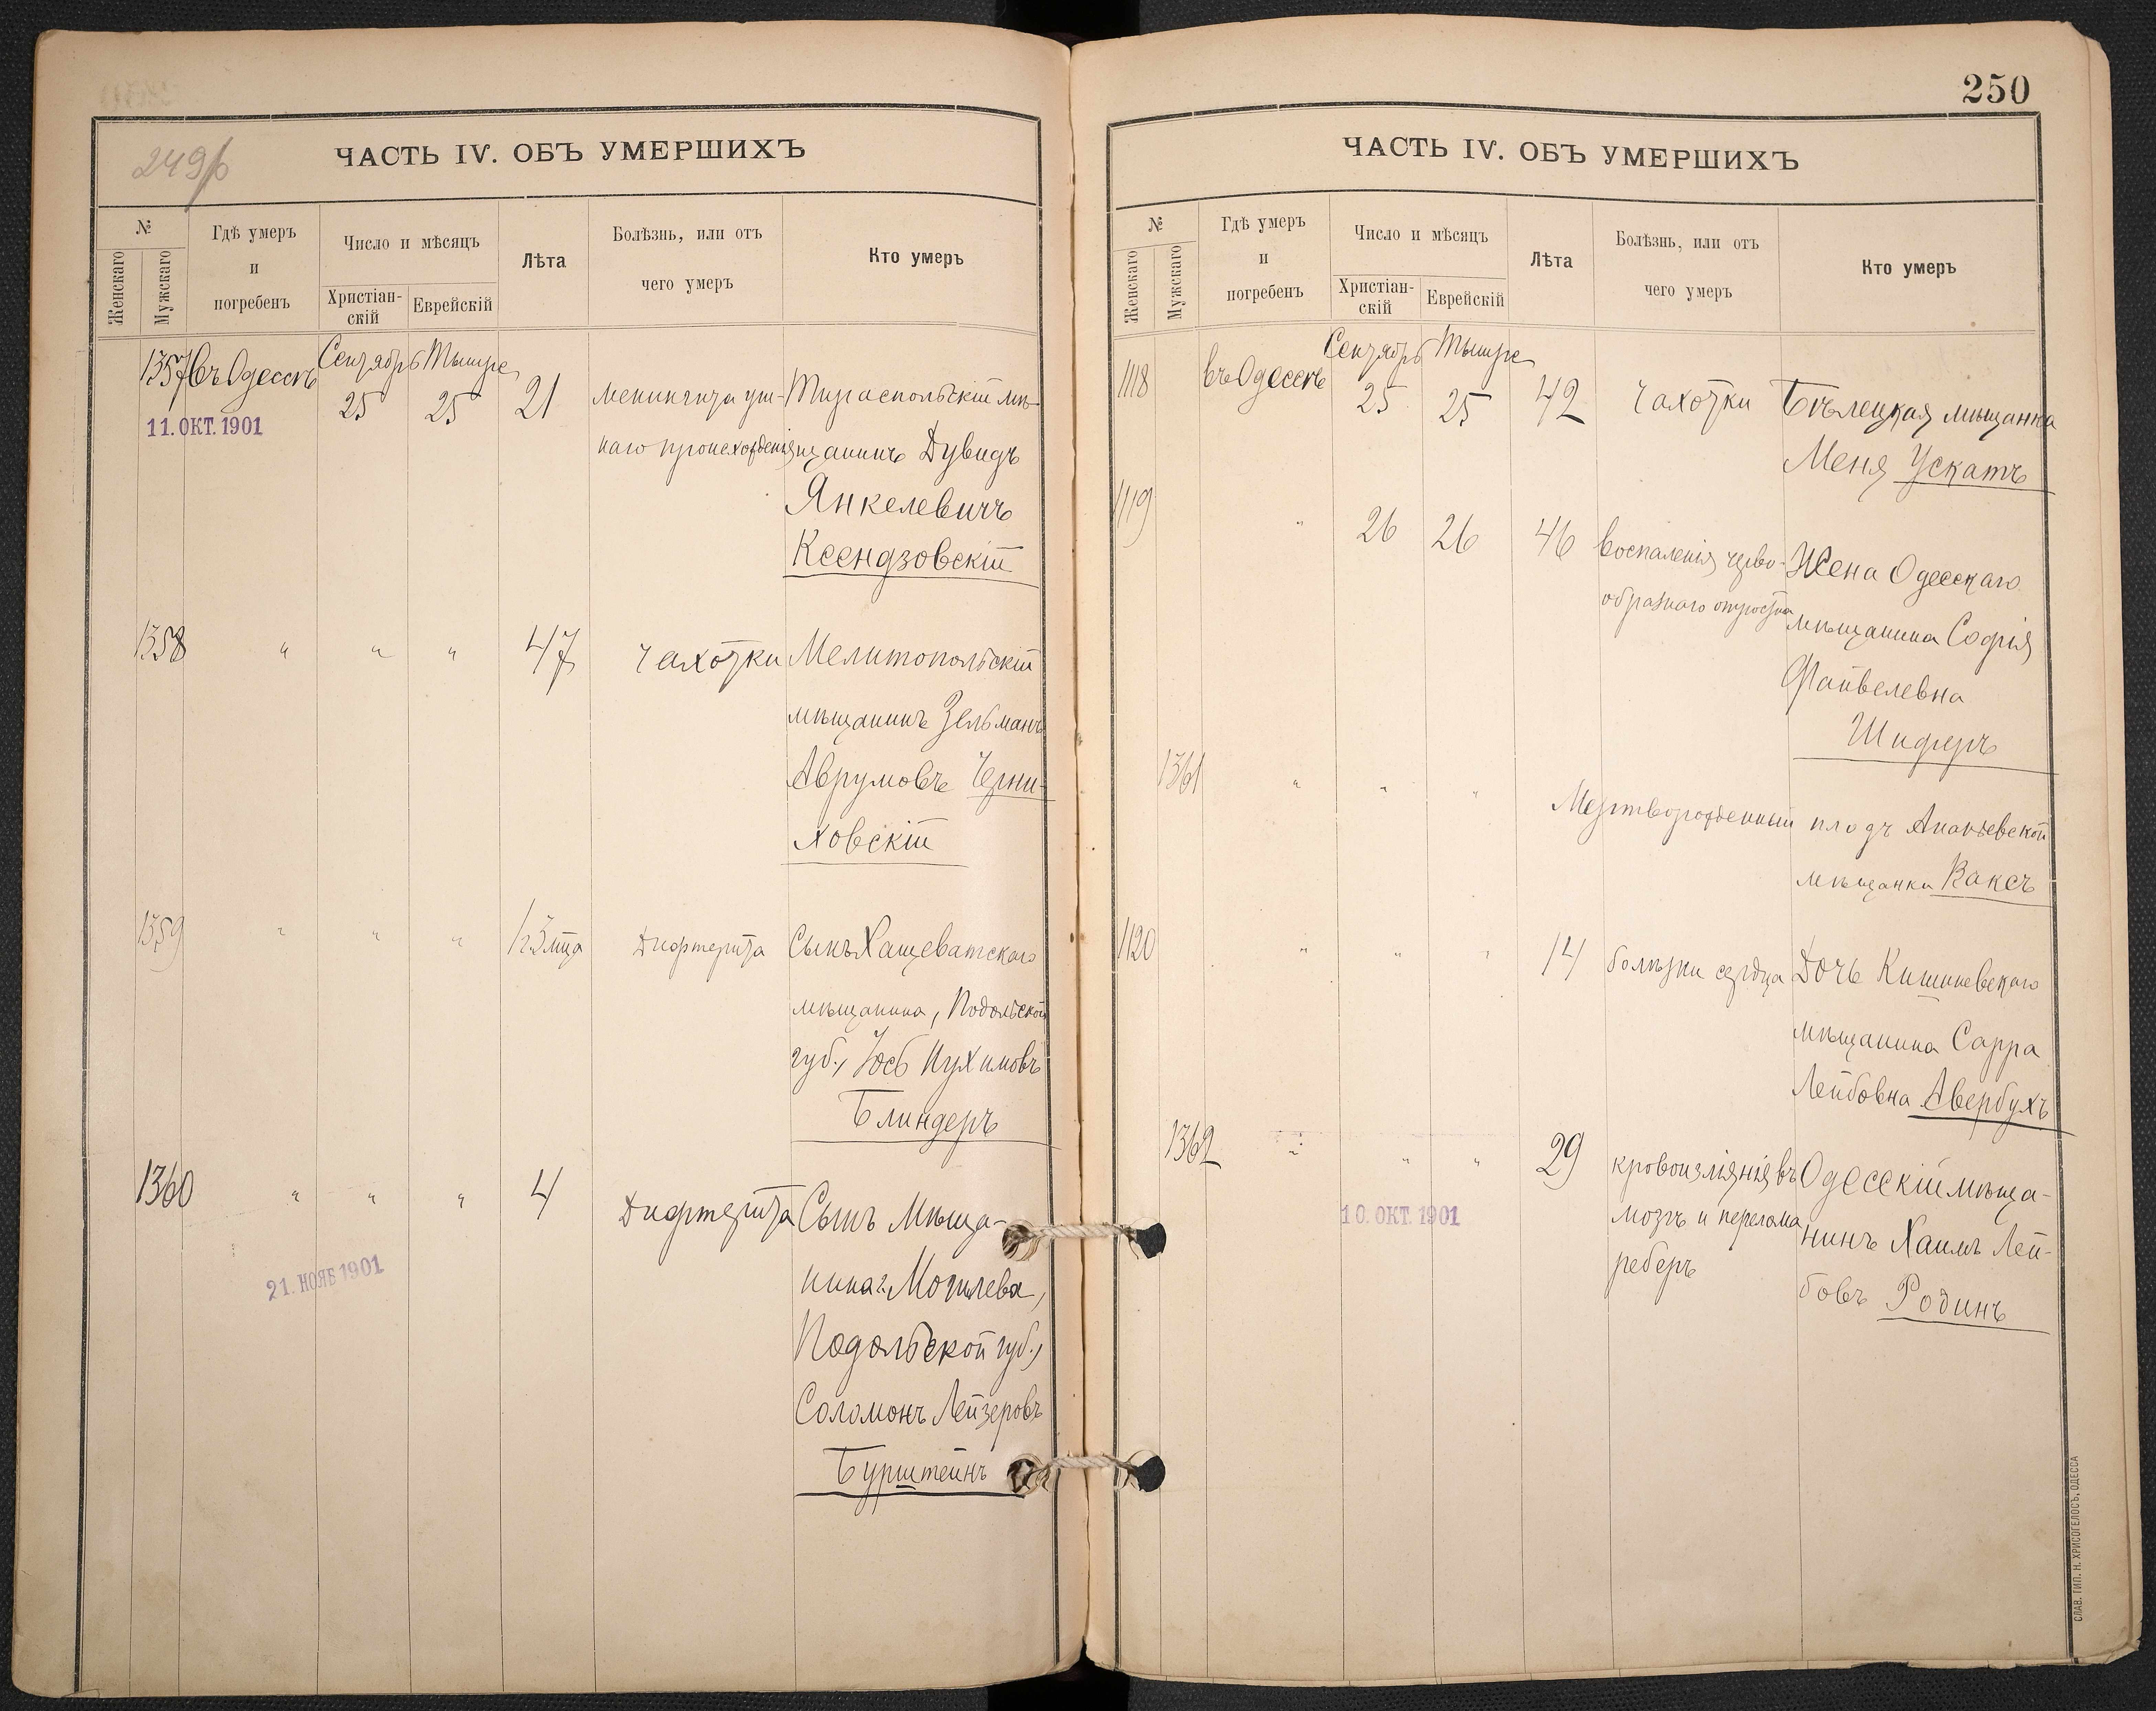 249б
ЧАСТЬ IV. ОБЪ УМЕРШИХЪ
№
Женскаго
Мужскаго
Гдѣ умеръ
и
погребенъ
Число и мѣсяцъ
Христіан-
скій
Еврейскій
Лѣта
Болѣзнь, или отъ
чего умеръ
Кто умеръ
1357 въ Одессѣ Сентябрь Тишре
25 25 21 менингита уш- Тираспольскій мѣ-
11. ОКТ. 1901
наго происхожденія щанинъ Дувидъ
Янкелевичъ
Ксендзовскій
1358 " " " 47 чахотки Мелитопольскій
мѣщанинъ Зельманъ
Аврумовъ Черни-
ховскій
1359 " " " 1 г. 3 м-ца Дифтерита Сынъ Хащеватскаго
мѣщанина, Подольской
губ., Іось Нухимовъ
Блиндеръ
1360 " " " 4 Дифтерита Сынъ Мѣща-
21. НОЯБ 1901
нина г. Могилева,
Подольской губ.,
Соломонъ Лейзеровъ
Бурштейнъ
250
ЧАСТЬ IV. ОБЪ УМЕРШИХЪ
№
Женскаго
Мужскаго
Гдѣ умеръ
и
погребенъ
Число и мѣсяцъ
Христіан-
скій
Еврейскій
Лѣта
Болѣзнь, или отъ
чего умеръ
Кто умеръ
1118 въ Одессѣ Сентябрь Тишре
25 25 42 чахотки Бѣлецкая мѣщанка
Меня Ускатъ
1119 " 26 26 46 воспаленія черво- Жена Одесскаго
образнаго отростка мѣщанина Софія
Файвелевна
Шиферъ
1361 " " " Мертворожденный плодъ Ананьевской
мѣщанки Ваксъ
1120 " " " 14 болѣзни сердца Дочь Кишиневскаго
мѣщанина Сарра
Лейбовна Авербухъ
1362 " " " 29 кровоизліянія въ Одесскій мѣща-
10. ОКТ. 1901
мозгъ и перелома нинъ Хаимъ Лей-
реберъ бовъ Родинъ
СЛАВ. ТИП. Н. ХРИСОГЕЛОСЪ, ОДЕССА